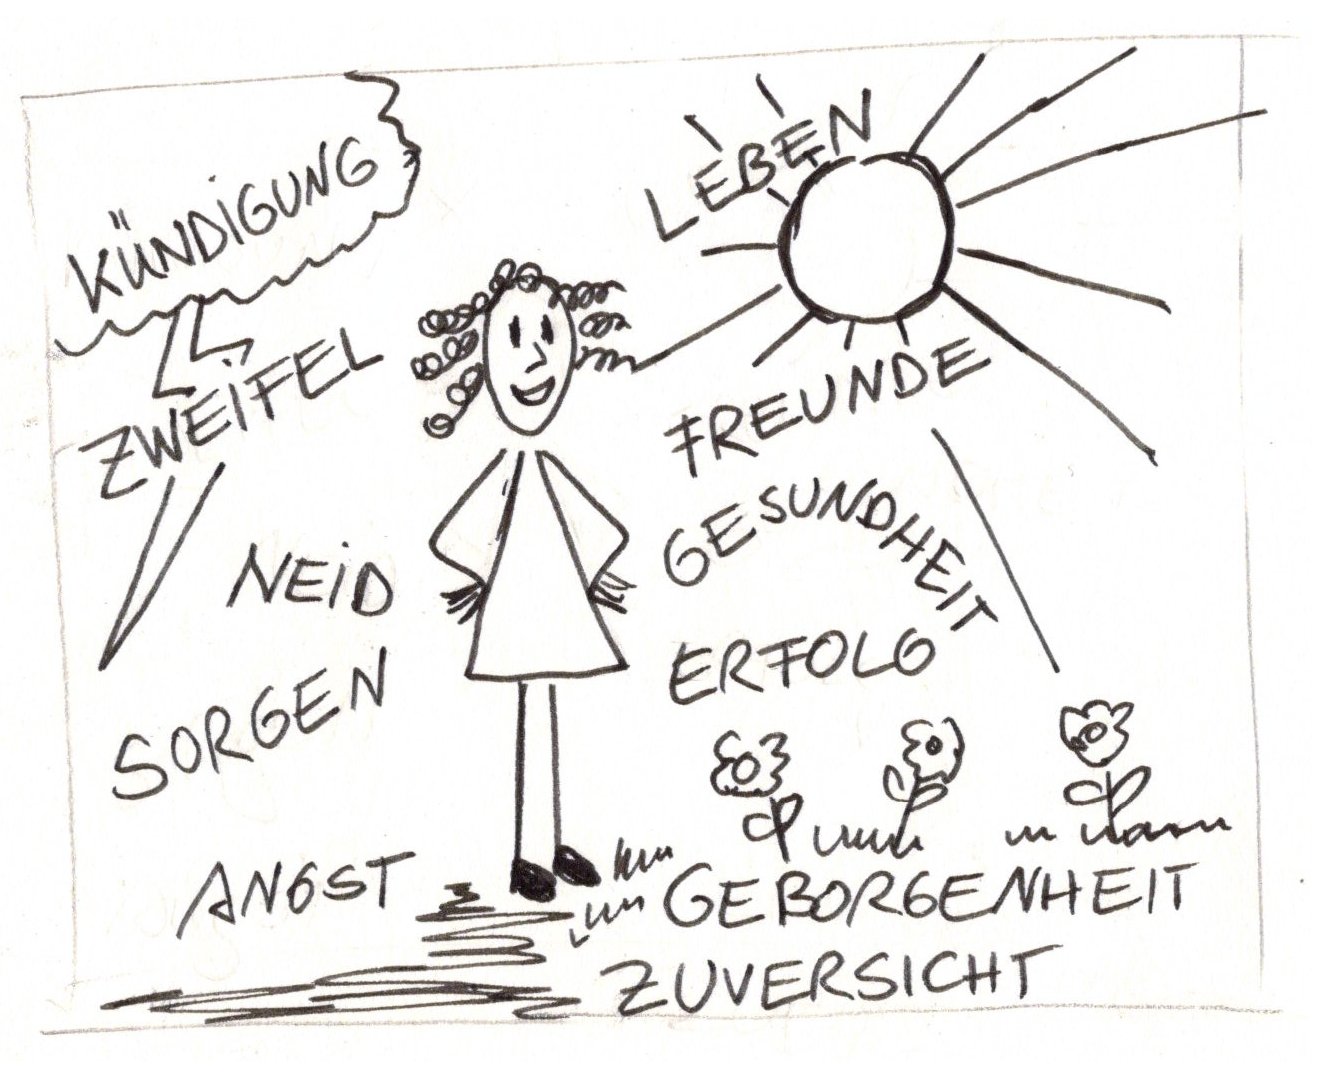 KÜNDIGUNG
ZWEIFEL
NEID
SORGEN
ANGST
LEBEN
FREUNDE
GESUNDHEIT
ERFOLG
GEBORGENHEIT
ZUVERSICHT